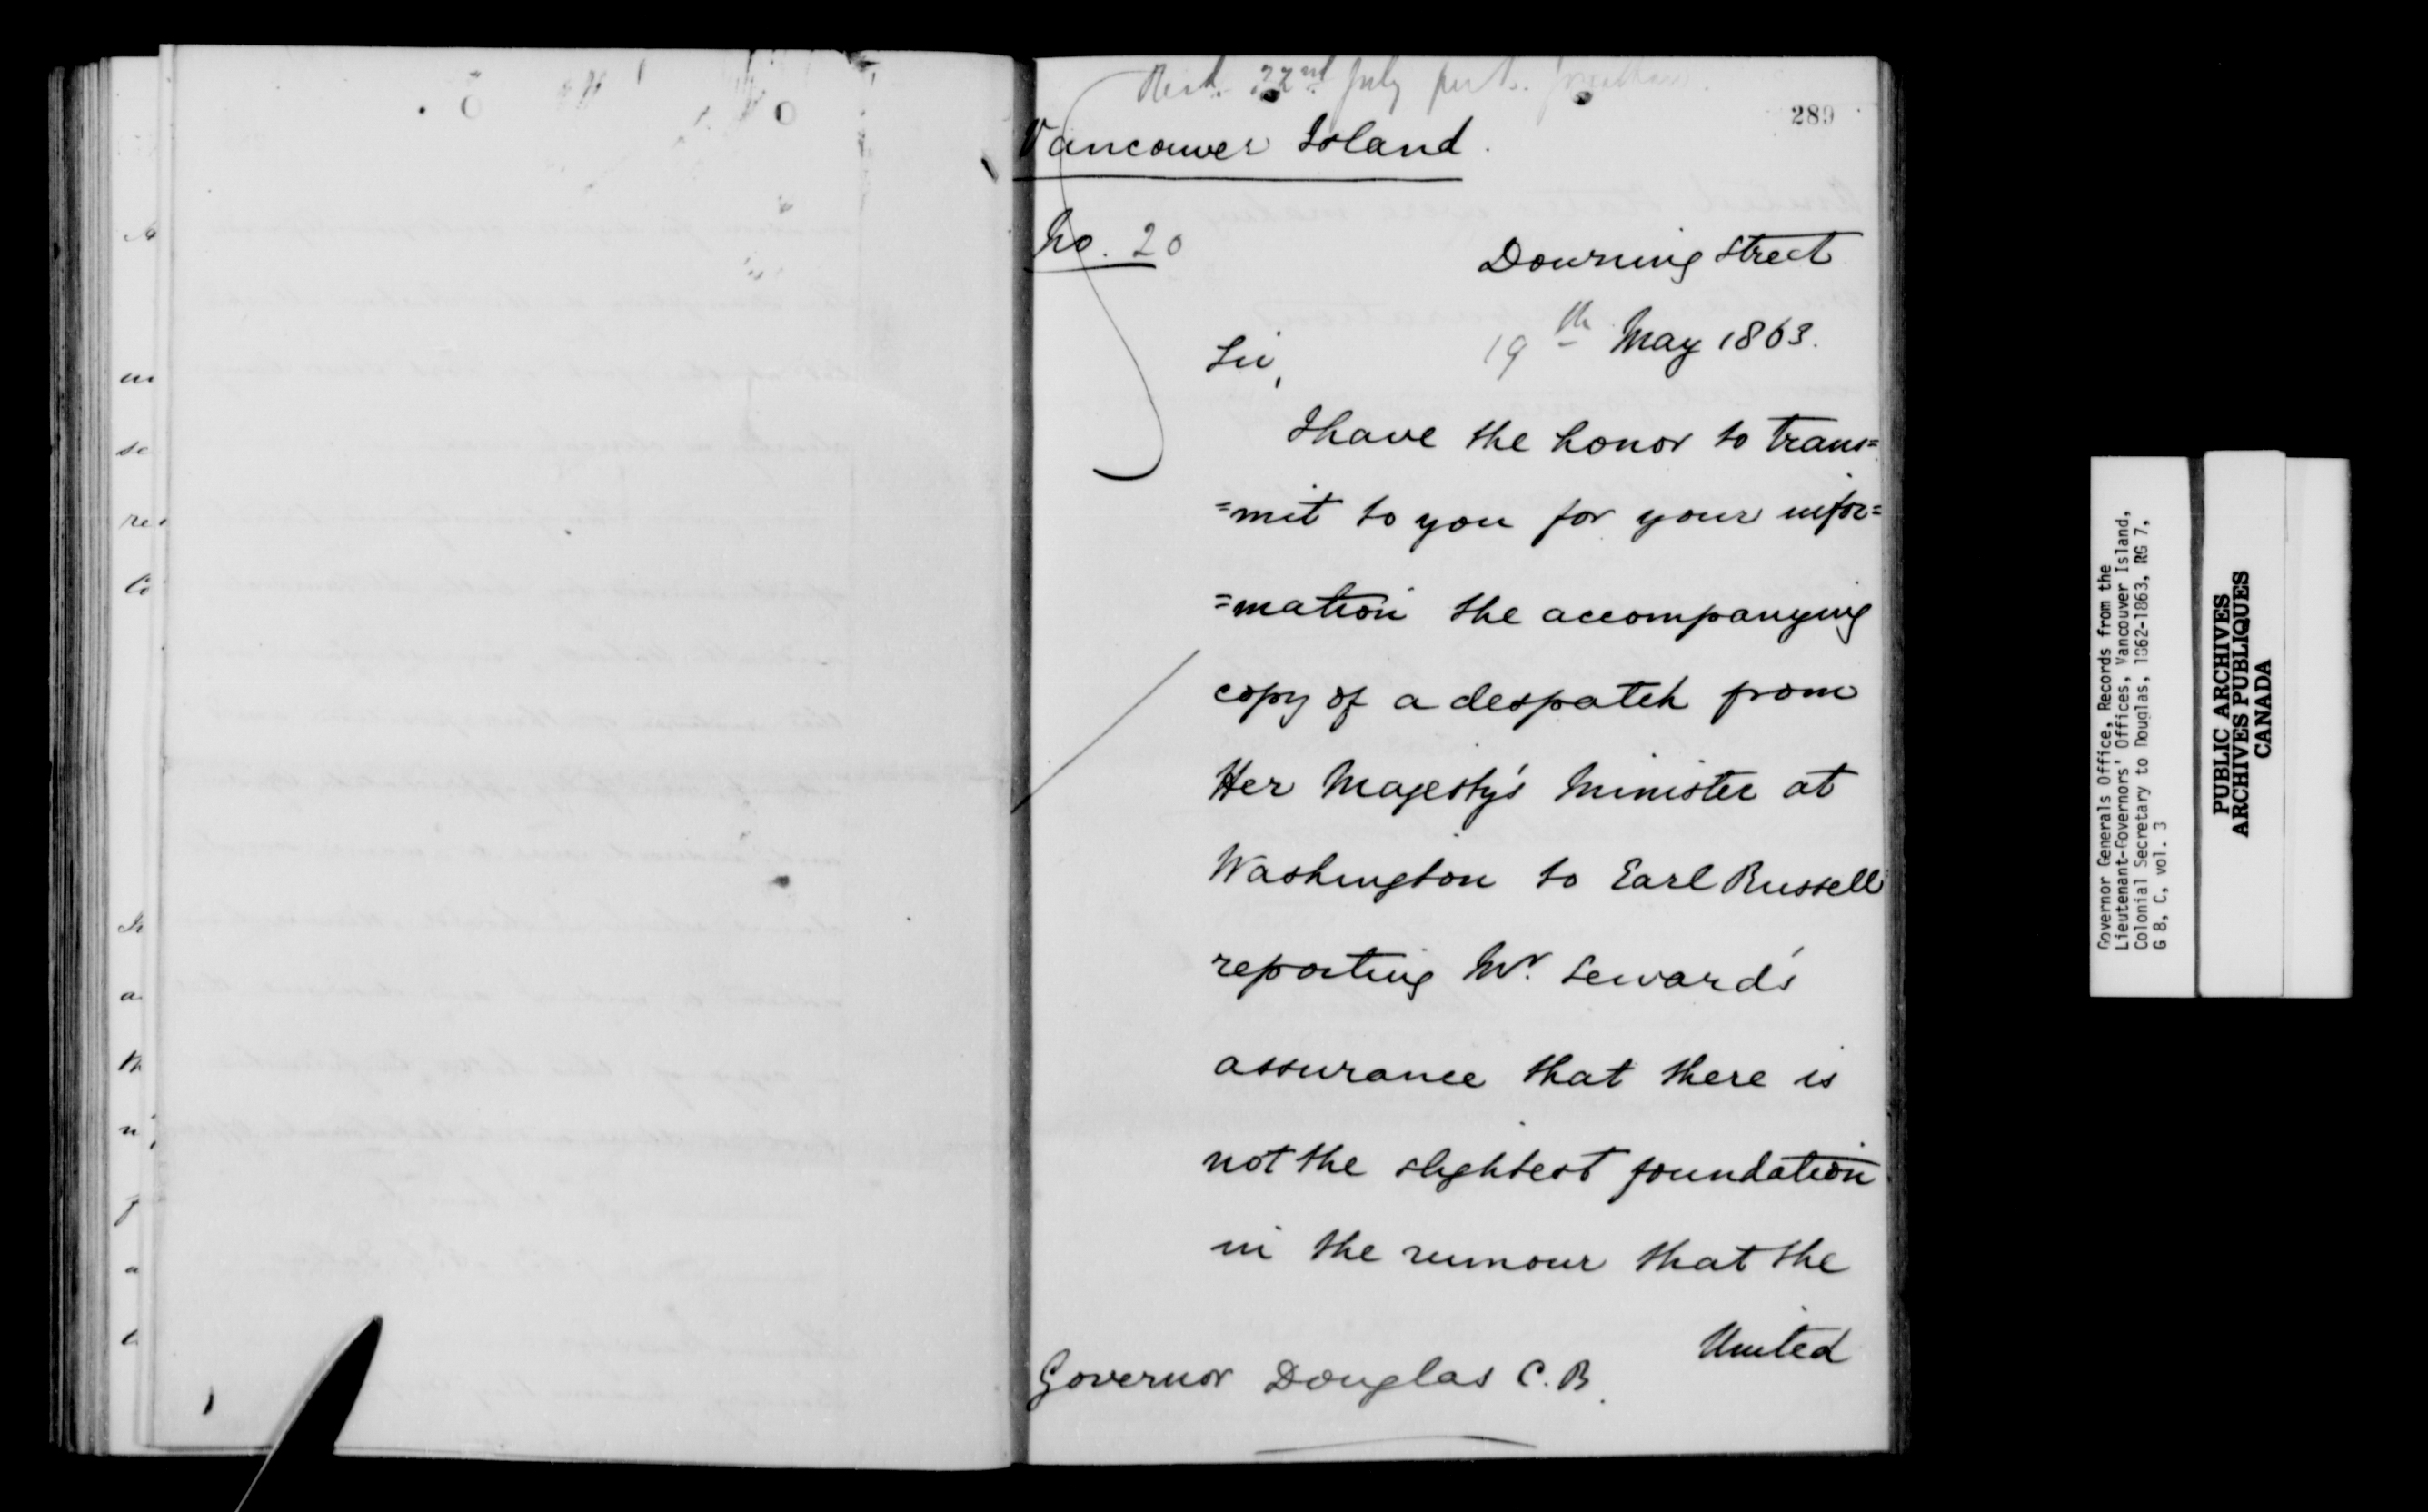 Recd. 22nd July per S.
289
Vancouver Island.
No. 20
Downing Street
19th May 1863.
Sir,
I have the honor to trans=
=mit to you for your infor=
=mation the accompanying
copy of a despatch from
Her Majesty's Minister at
Washington to Earl Russell
reporting Mr. Seward's
assurance that there is
not the slightest foundation
in the rumour that the
United
Governor Douglas C.B.
Governor Generals Office, Records from the
Lieutenant-Governors' Offices, Vancouver Island,
Colonial Secretary to Douglas, 1862-1863, RG 7,
G 8, C, vol. 3
PUBLIC ARCHIVES
ARCHIVES PUBLIQUES
CANADA